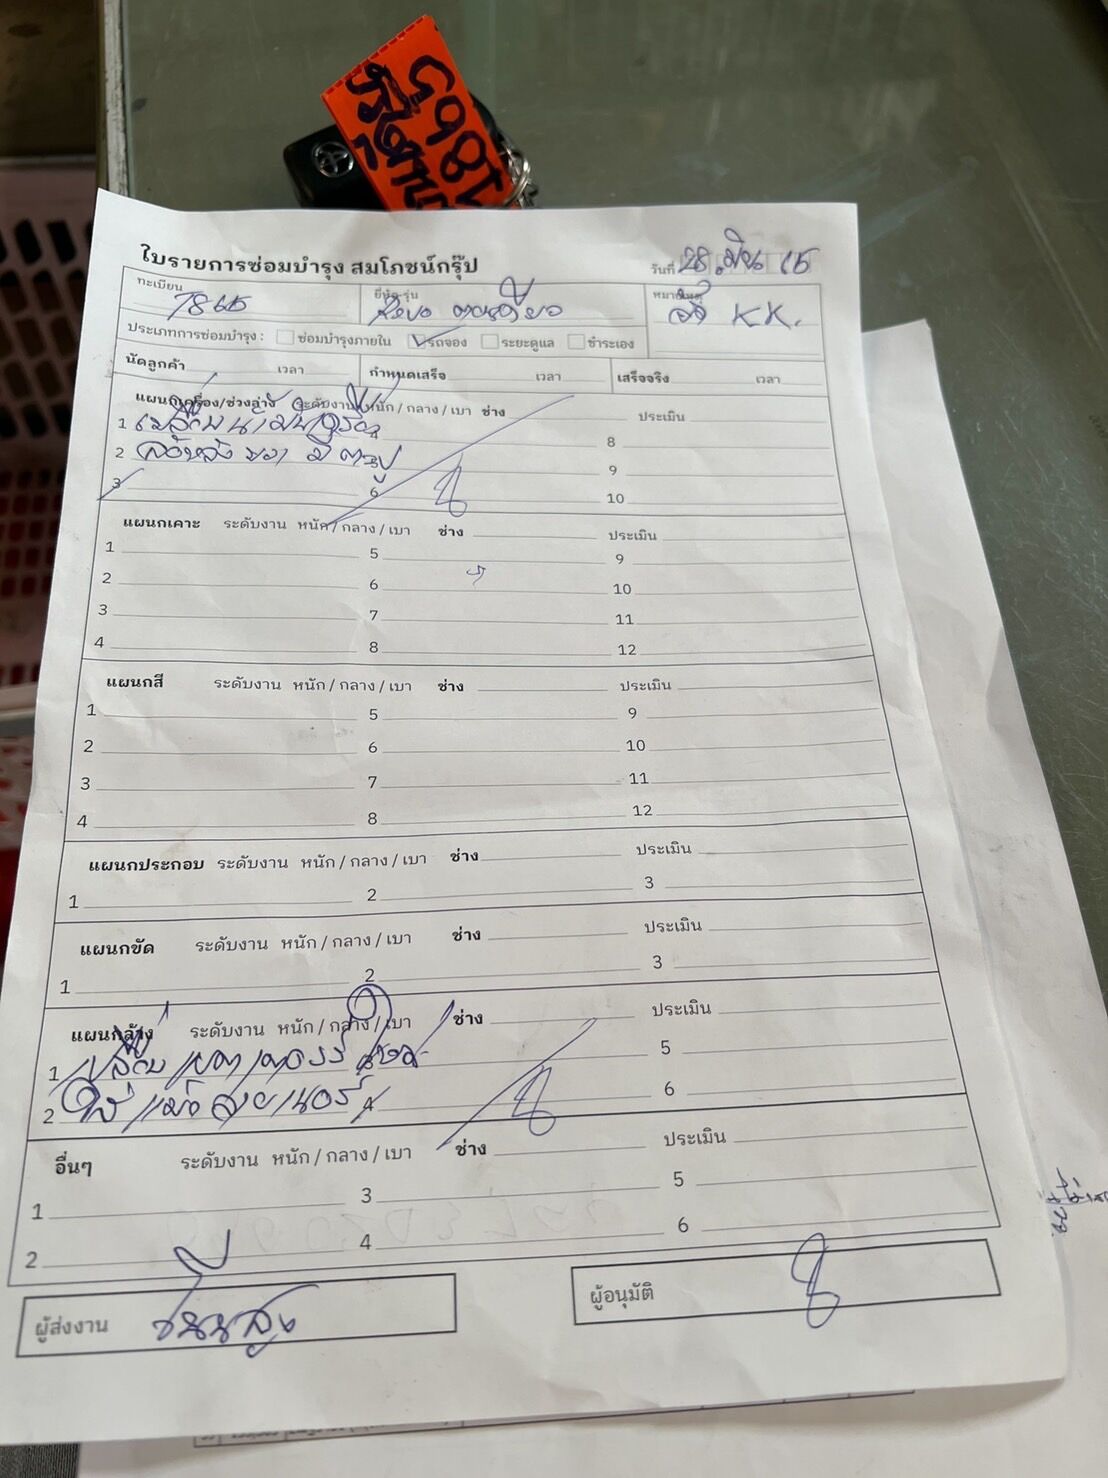 ใบรายการซ่อมบำรุง สมโภชน์กรุ๊ป
วันที่ 28
ทะเบียน ยี่ห้อ-รุ่น ตอนเดียว หมายเหตุ KK.
ประเภทการซ่อมบำรุง : ซ่อมบำรุงภายใน รถจอง ระยะดูแล ชำระเอง
นัดลูกค้า เวลา กำหนดเสร็จ เวลา เสร็จจริง เวลา
แผนกเครื่อง/ช่วงล่าง ระดับงาน หนัก / กลาง / เบา ช่าง ประเมิน
1 เปลี่ยนน้ำมันเครื่อง 8
2 ล้อหลัง ขวา มี ตะปู 9
3 6 10
แผนกเคาะ ระดับงาน หนัก / กลาง / เบา ช่าง ประเมิน
1 5 9
2 6 10
3 7 11
4 8 12
แผนกสี ระดับงาน หนัก / กลาง / เบา ช่าง ประเมิน
1 5 9
2 6 10
3 7 11
4 8 12
แผนกประกอบ ระดับงาน หนัก / กลาง / เบา ช่าง ประเมิน
1 2 3
แผนกขัด ระดับงาน หนัก / กลาง / เบา ช่าง ประเมิน
1 2 3
แผนกล้าง ระดับงาน หนัก / กลาง / เบา ช่าง ประเมิน
1 เปลี่ยน แบตเตอรี่ 5
2 ใส่ 4 6
อื่นๆ ระดับงาน หนัก / กลาง / เบา ช่าง ประเมิน
1 3 5
2 4 6
ผู้ส่งงาน ผู้อนุมัติ